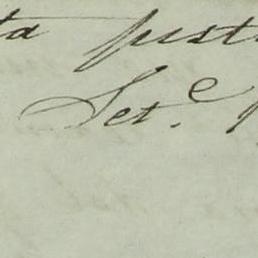 ta just
Set.e